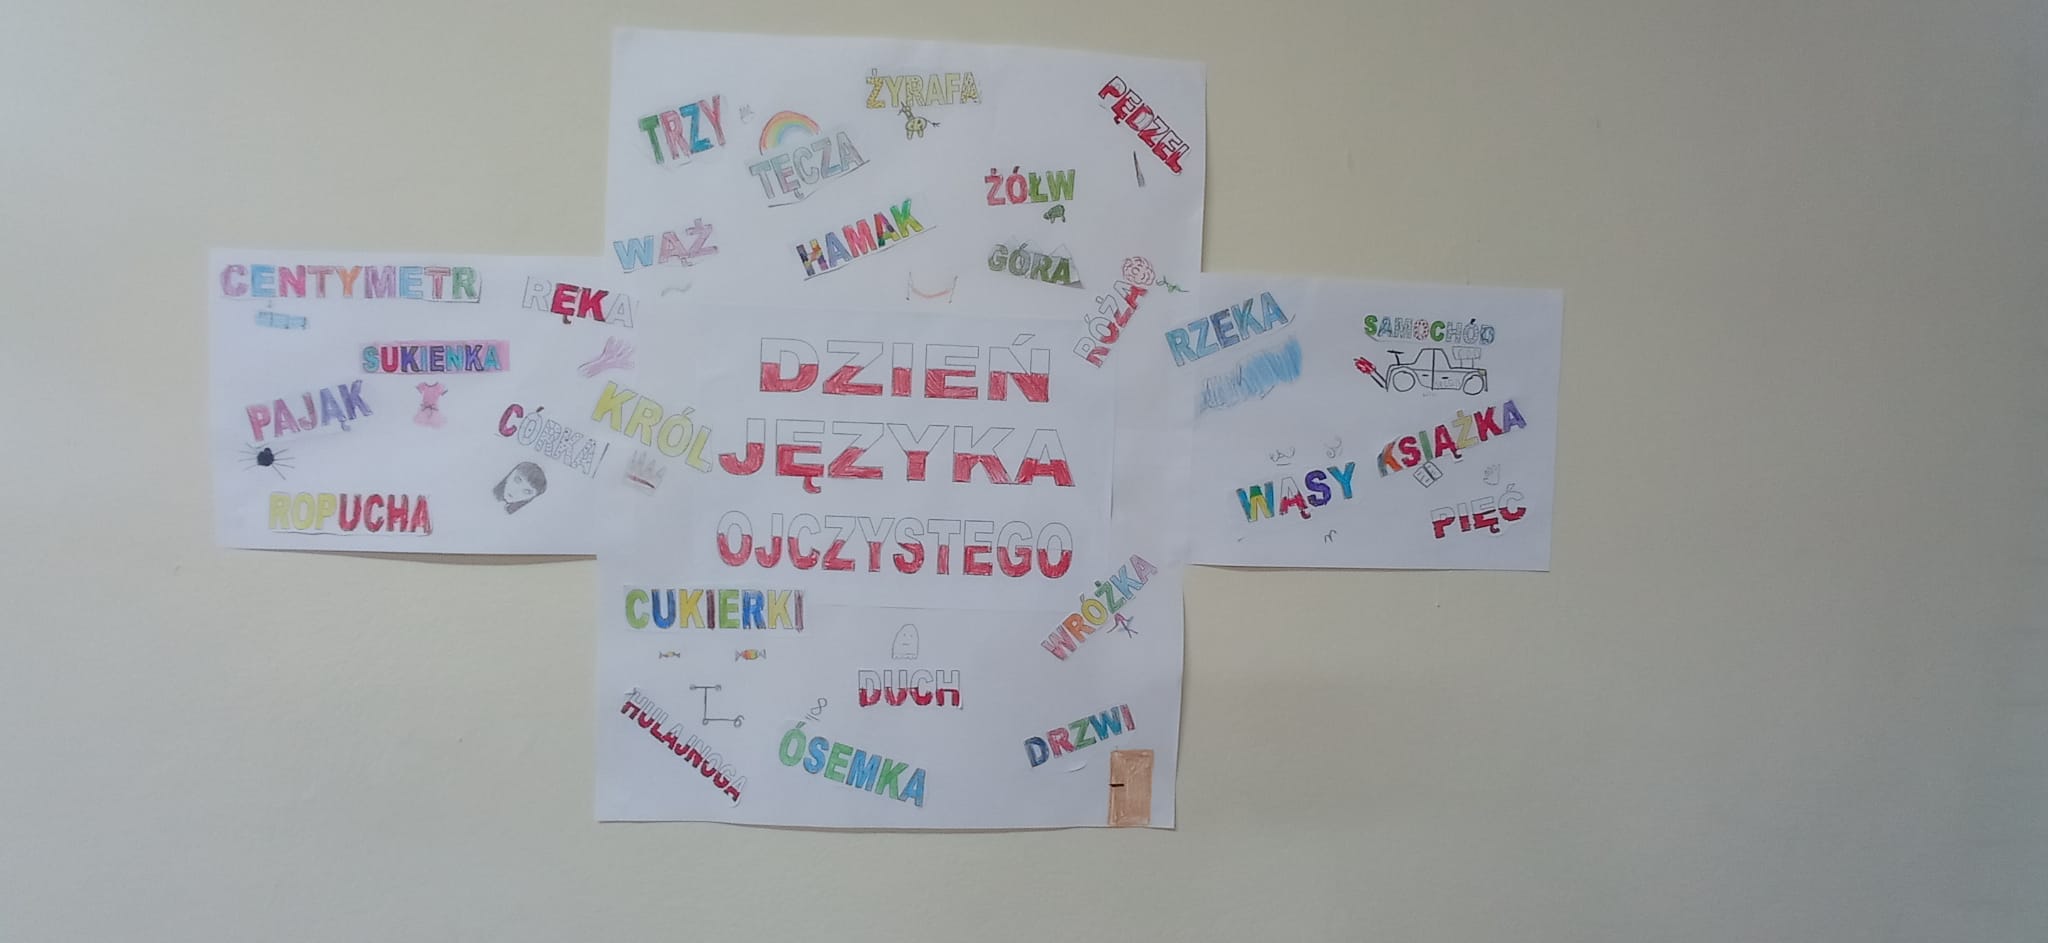 TRZY
TĘCZA
ŻYRAFA
PĘDZEL
WĄŻ
HAMAK
ŻÓŁW
GÓRA
RÓŻA
CENTYMETR
RĘKA
SUKIENKA
PAJĄK
CÓRKA
KRÓL
ROPUCHA
DZIEŃ
JĘZYKA
OJCZYSTEGO
RZEKA
SAMOCHÓD
KSIĄŻKA
WĄSY
PIĘĆ
CUKIERKI
DUCH
WRÓŻKA
HULAJNOGA
ÓSEMKA
8
DRZWI